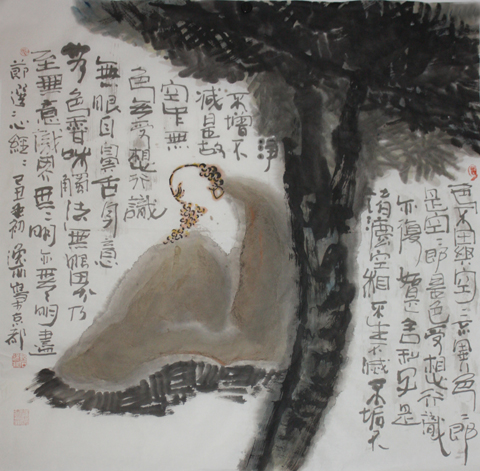 色不異空〻不異色〻即
是空〻即是色受想行識
亦復如是舍利子是
諸法空相不生不滅不垢不
淨
不增不
減是故
空中無
色無受想行識
無眼耳鼻舌身意
色香味觸法無眼界乃
至無意識界無〻明亦無〻明盡
節選〻心經〻己丑初京都